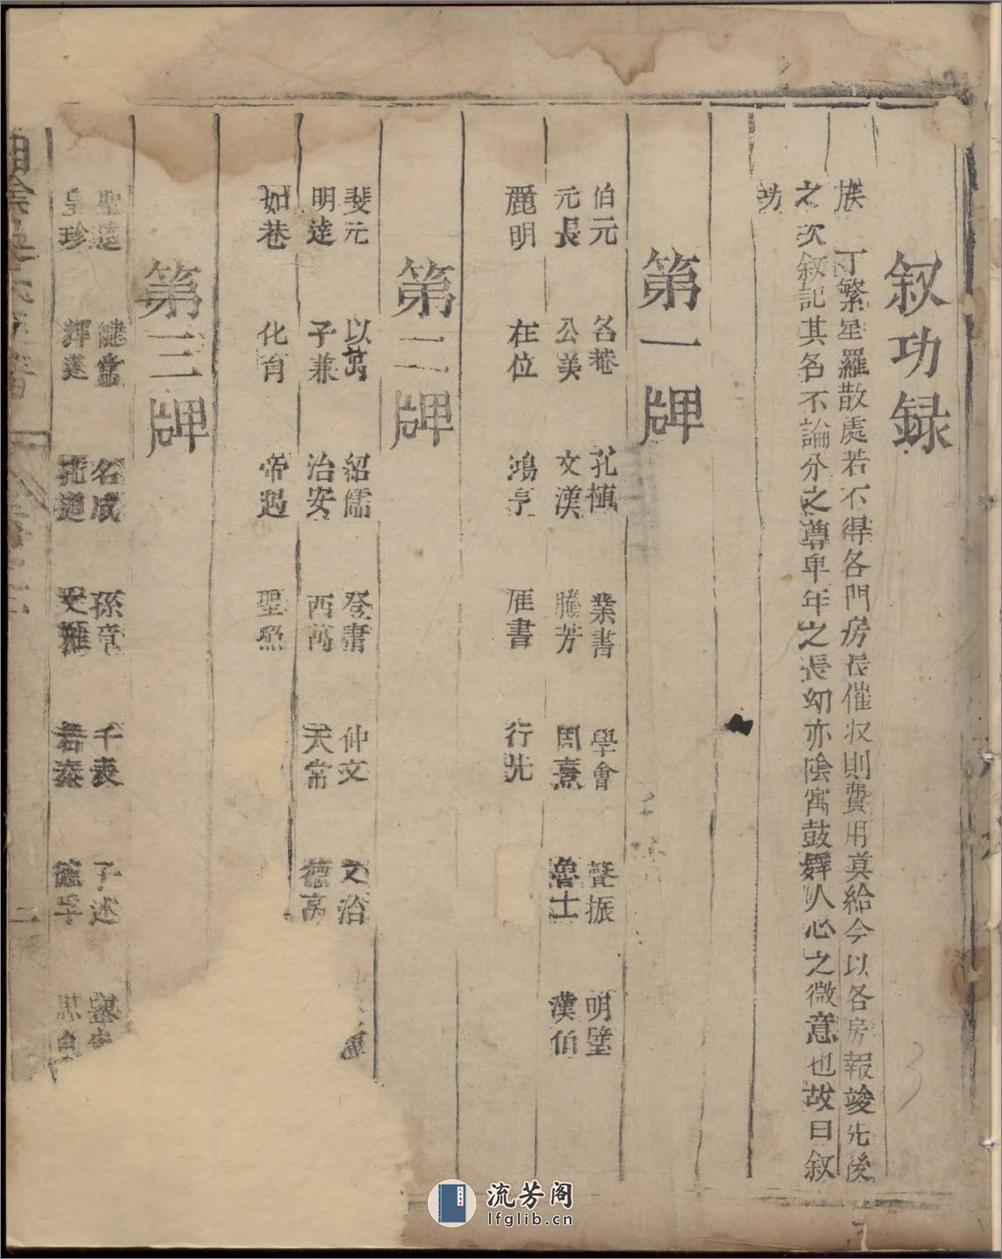 叙功録
族丁繁星羅散處若不得各門房長催収則費用莫給今以各房報竣先後
之次叙記其名不論分之尊卑年之長幼亦陰寓鼓舞人心之微意也故曰叙
功
第一牌
伯元 名菴 孔植 業書 學會 聲振 明璧
元長 公美 文漢 騰芳 周熹 魯士 漢伯
麗明 在位 鴻亨 雁書 行先
第二牌
斐元 以萬 紹儒 登庸 仲文 文治
明達 子兼 治安 西萬 天常 德高
如巷 化育 帝遇 聖照
第三牌
聖遠 健當 名成 孫竟 千表 子述
皇珍 輝蓬 孔通 文雅 若泰 德孚
湘陰
二
流芳阁
lfglib.cn